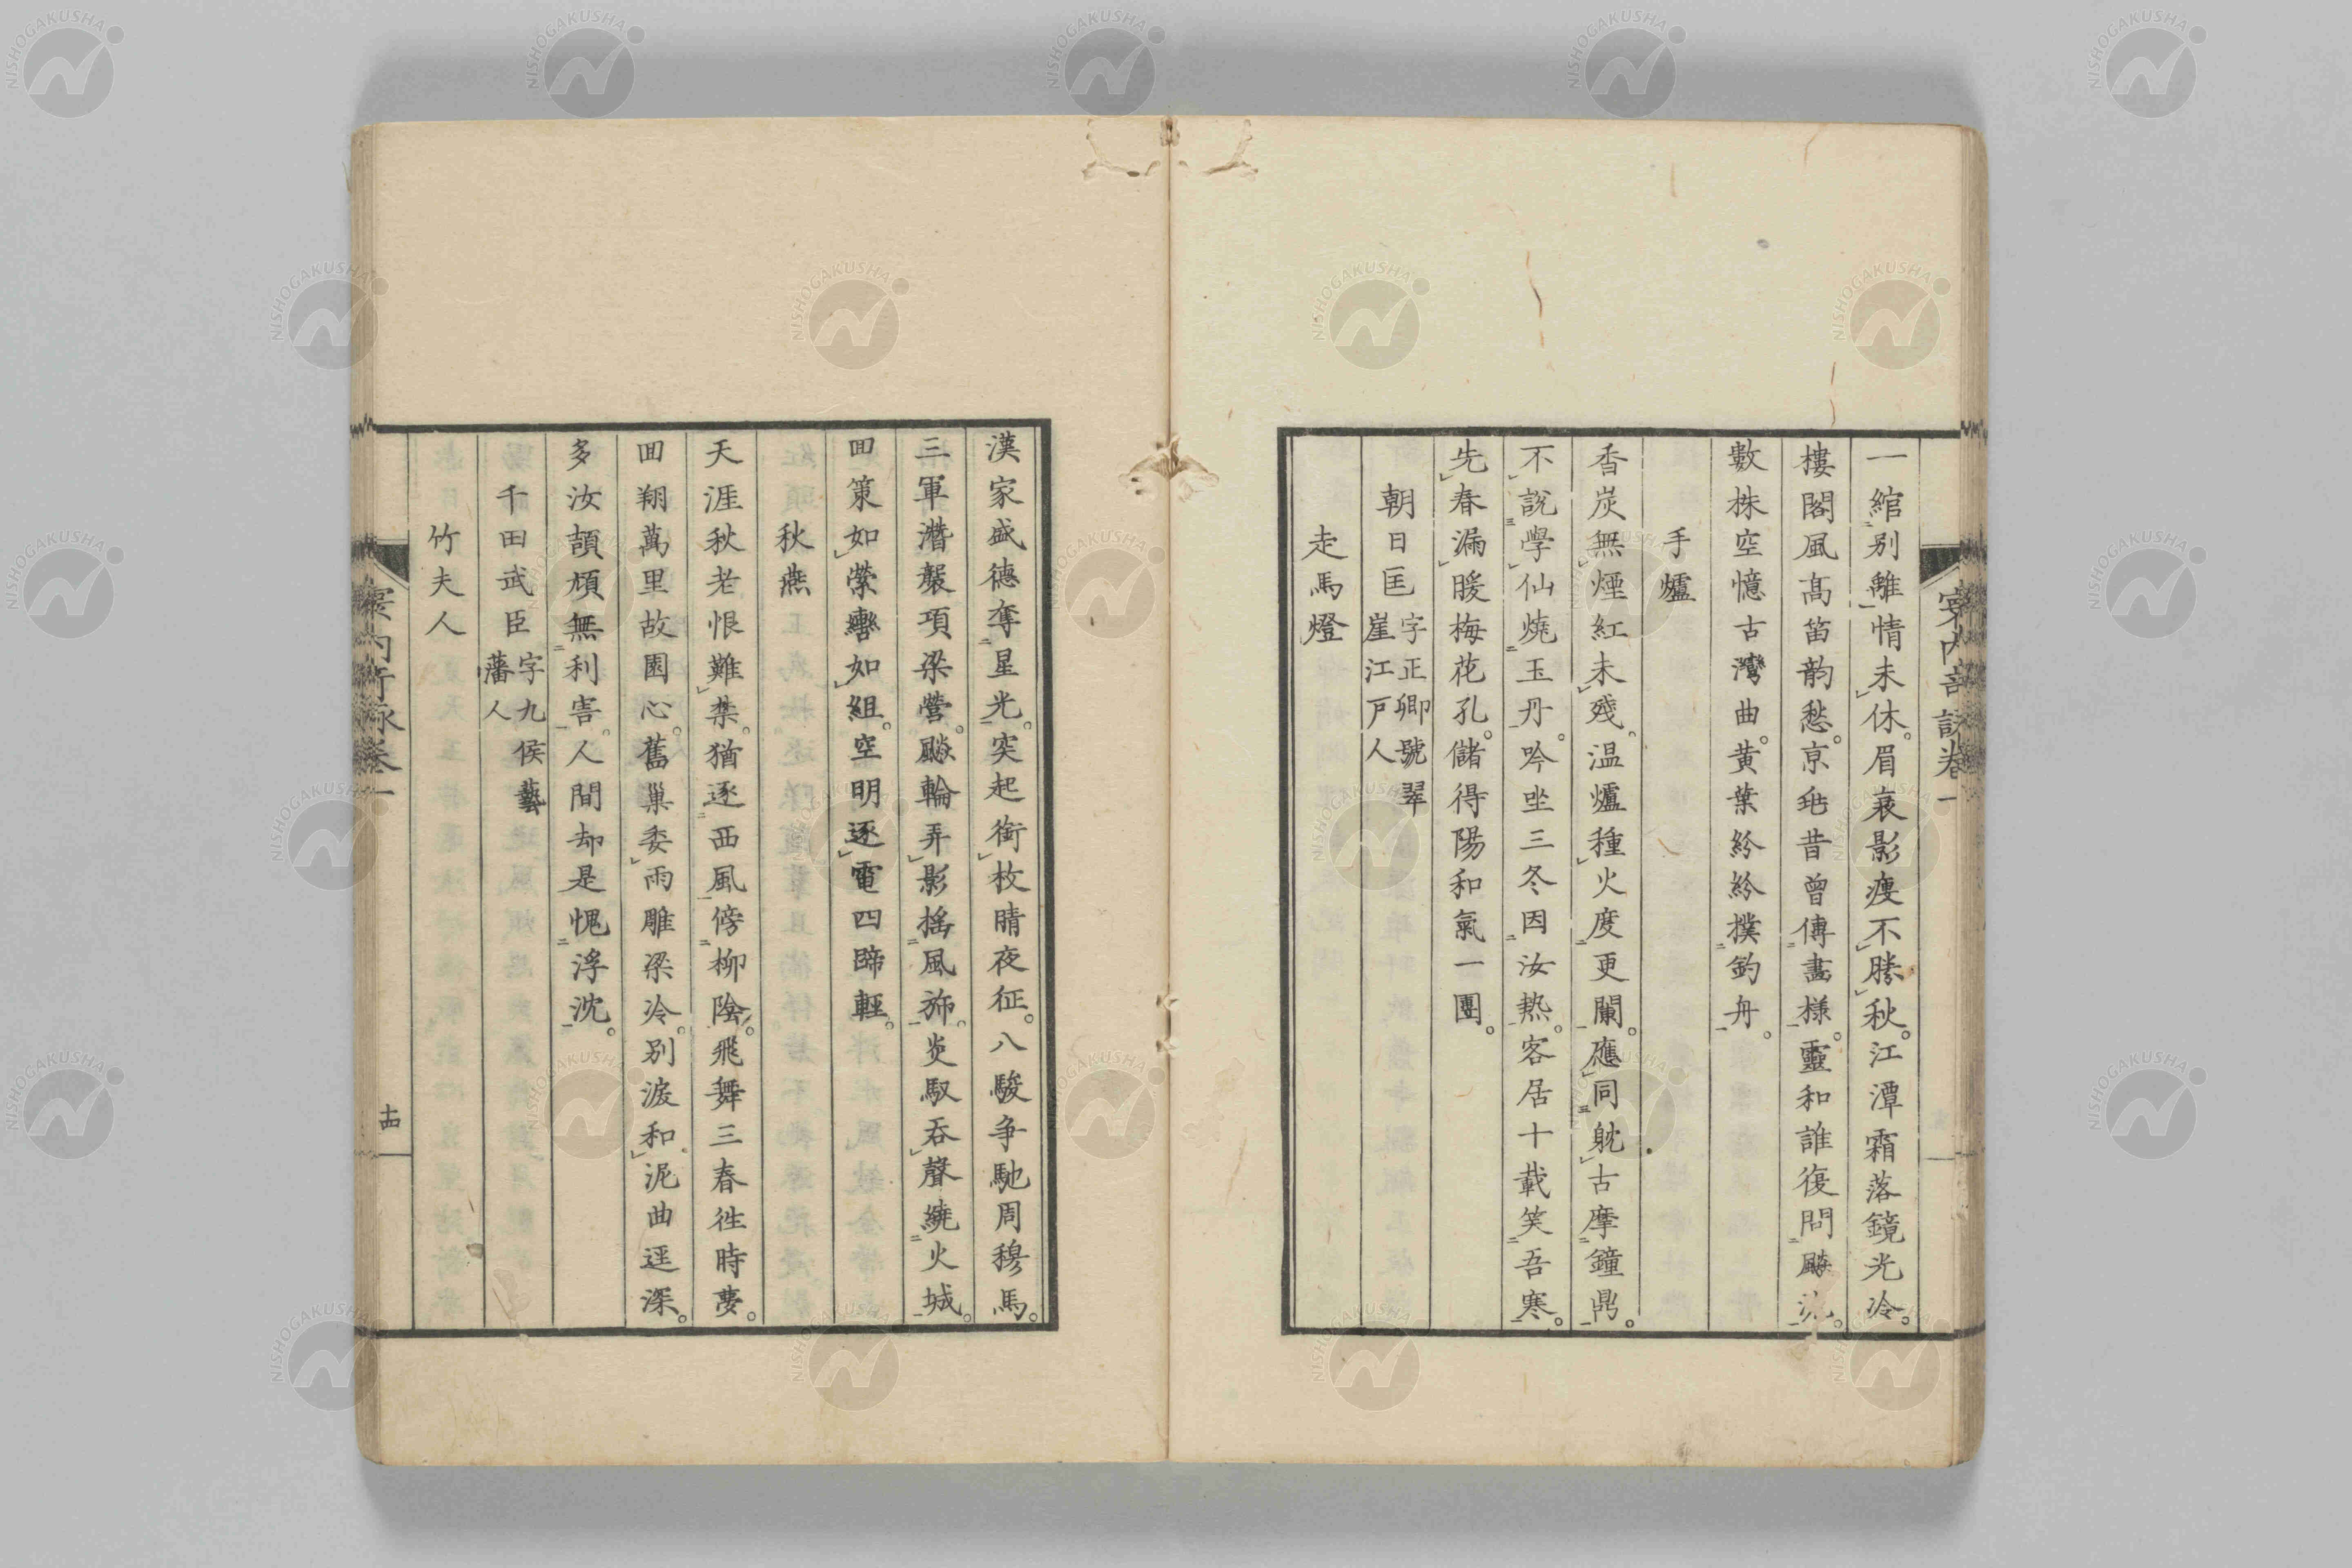 一綰別離情未休。眉衰影瘦不勝秋。江潭霜落鏡光冷。
樓閣風高笛韵愁。京兆昔曾傳畫樣。靈和誰復問風流。
數株空憶古灣曲。黃葉紛紛撲釣舟。
手爐
香炭無煙紅未殘。温爐種火度更闌。應同躭古摩鐘鼎。
不說學仙燒玉丹。吟坐三冬因汝熱。客居十載笑吾寒。
先春漏暖梅花孔。儲得陽和氣一團。
朝日匡字正卿號翠崖江戸人
走馬燈
漢家盛德奪星光。突起銜枚晴夜征。八駿争馳周穆馬。
三軍潛襲項梁營。飈輪弄影搖風旆。炎馭吞聲繞火城。
回策如縈轡如組。空明逐電四蹄輕。
秋燕
天涯秋老恨難禁。猶逐西風傍柳陰。飛舞三春往時夢。
回翔萬里故園心。舊巢委雨雕梁冷。別淚和泥曲逕深。
多汝頡頏無利害。人間却是愧浮沈。
千田武臣字九侯藝藩人
竹夫人
卷一
十四
NISHOGAKUSHA